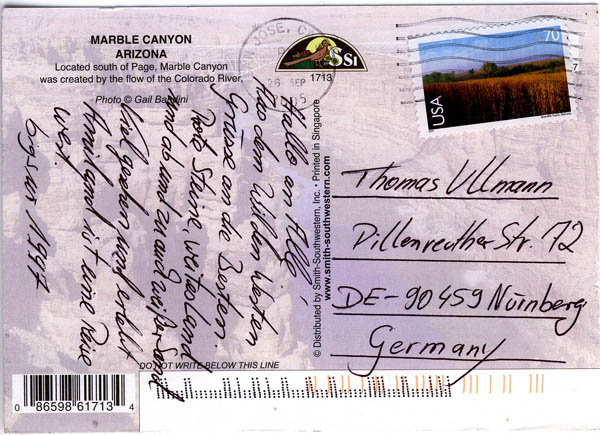 MARBLE CANYON
ARIZONA
Located south of Page, Marble Canyon
was created by the flow of the Colorado River.
Photo © Gail Bandini
SSI
1713
SAN JOSE, C
26 SEP
70
USA
Hallo an Alle,
Aus dem Wilden Westen
Grüsse an die Besten.
Rote Steine, weites Land
und ab und zu auch weißer Sand
Viel gesehen und erlebt
Amiland ist eine Reise
wert.
© Distributed by Smith-Southwestern, Inc. • Printed in Singapore
www.smith-southwestern.com
Thomas Ullmann
Dillenreuther Str. 72
DE-90459 Nürnberg
Germany
DO NOT WRITE BELOW THIS LINE
0 86598 61713 4